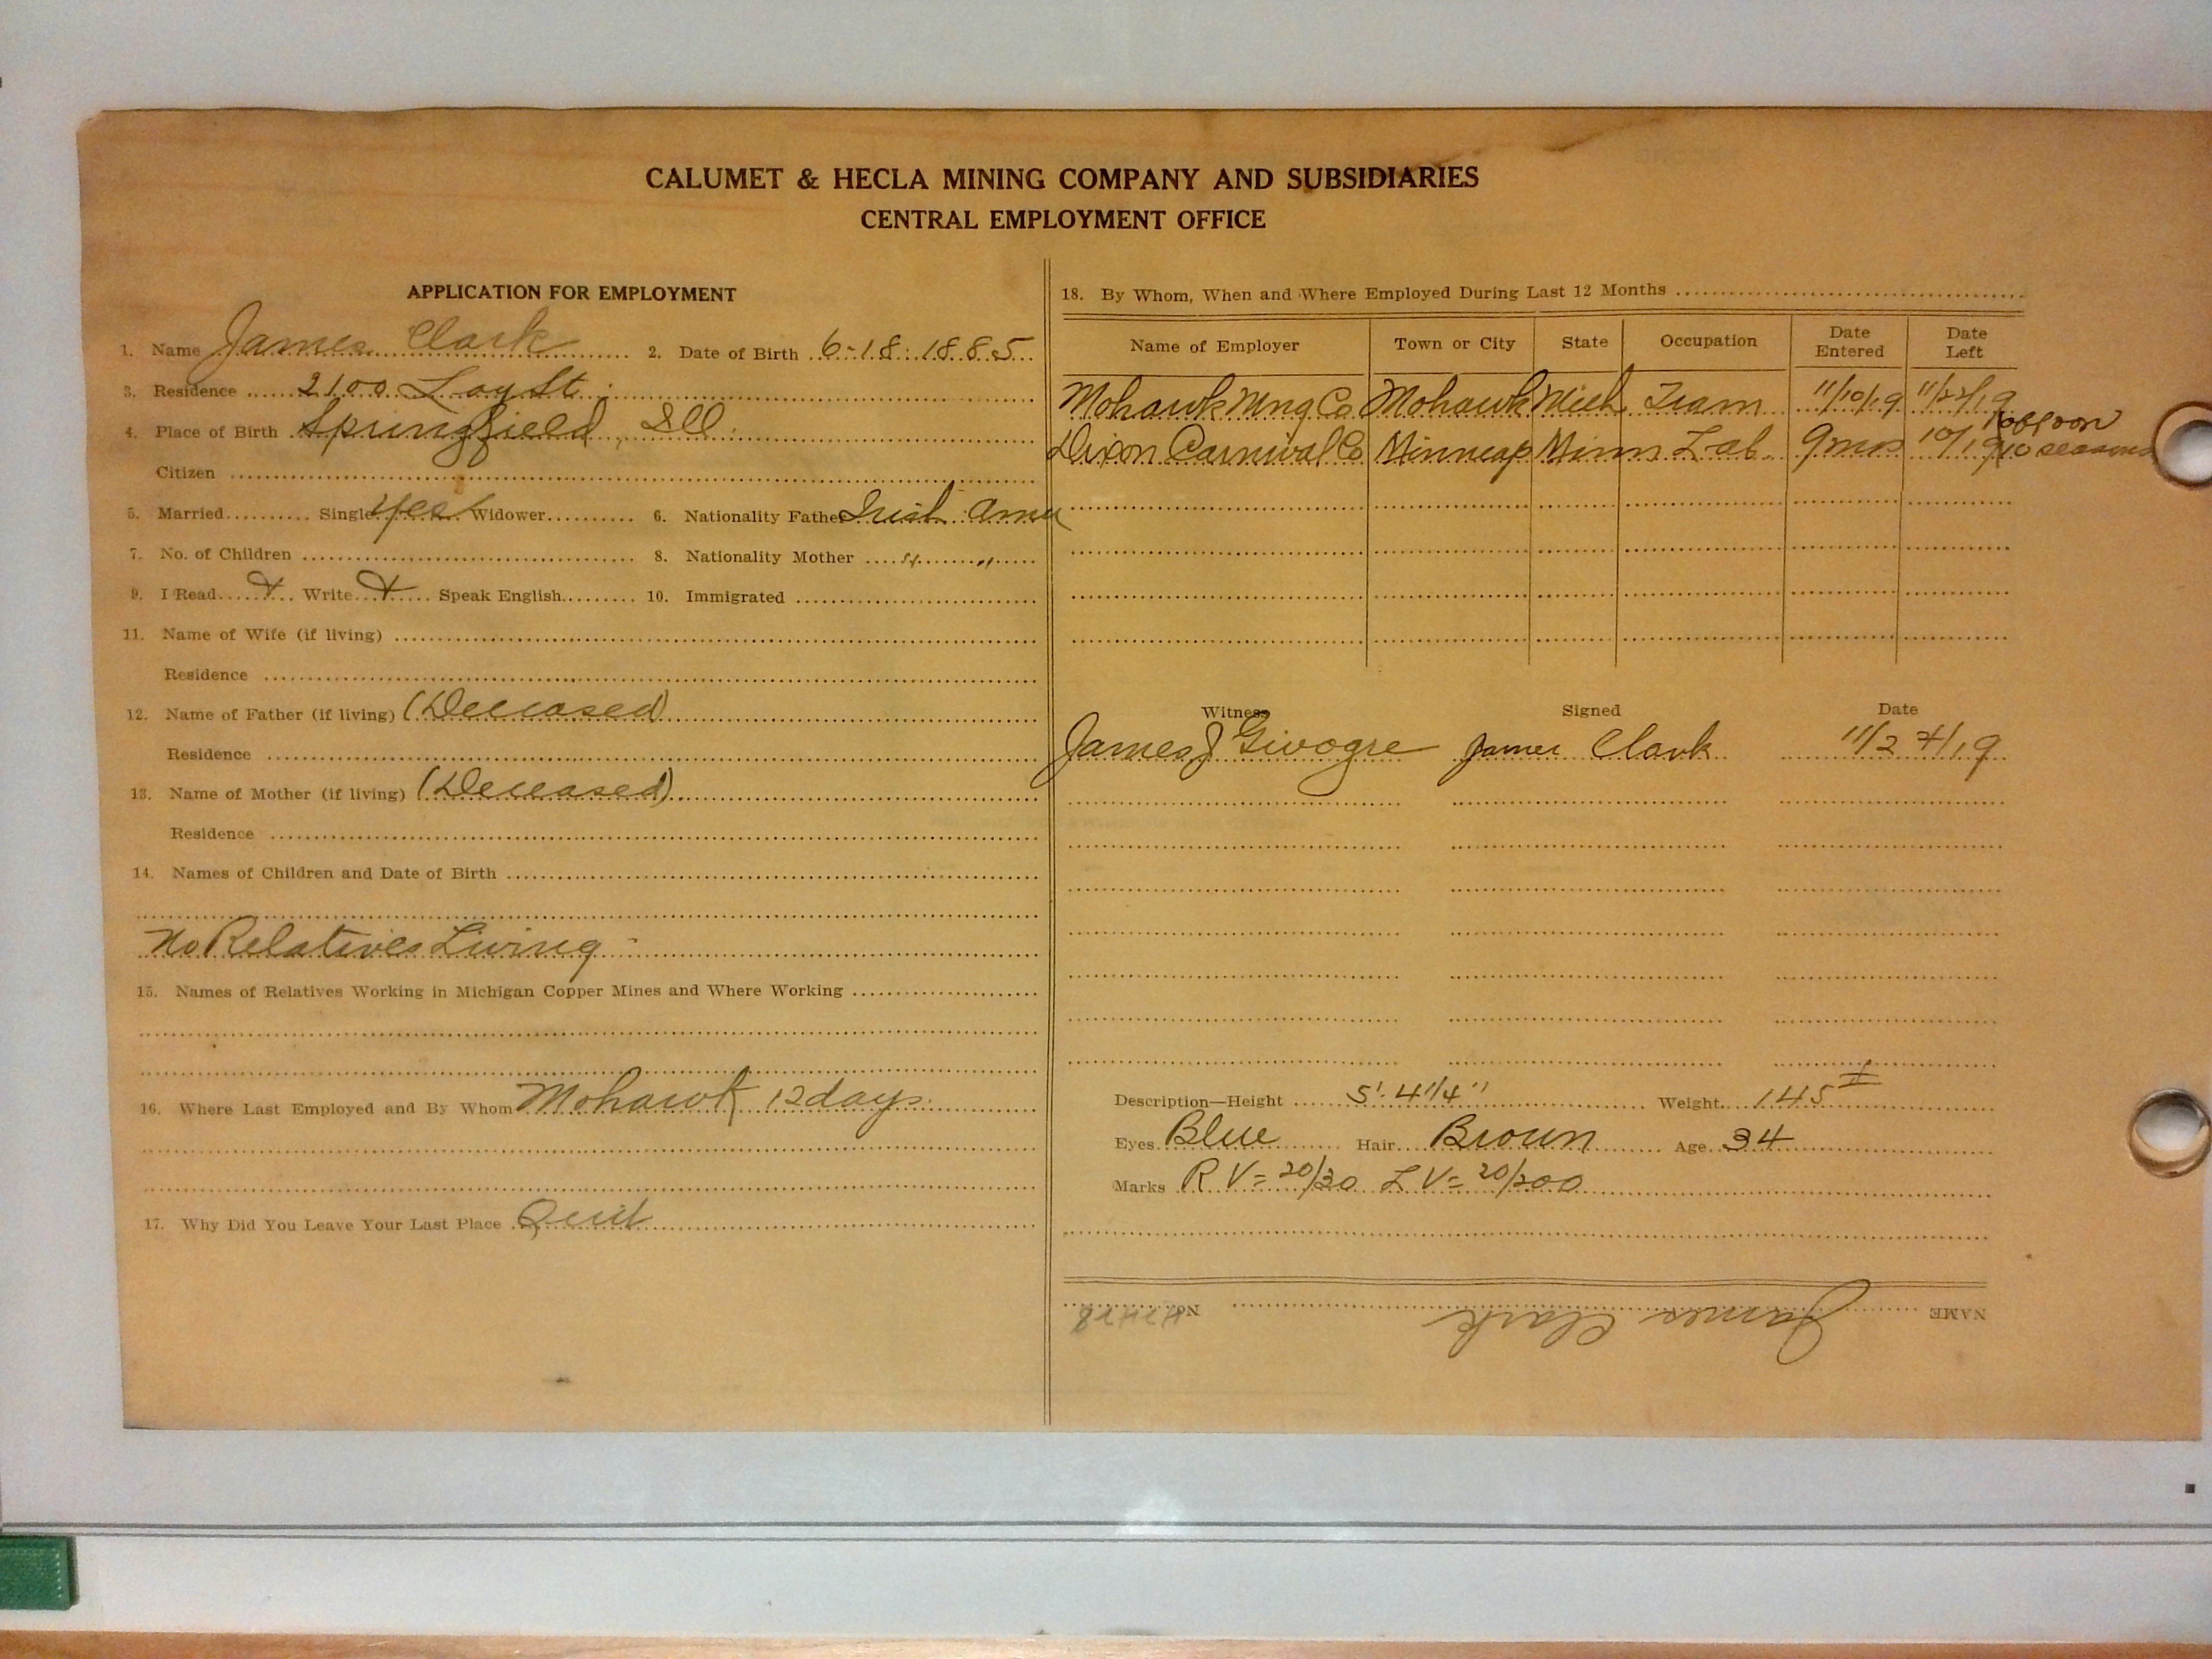 CALUMET & HECLA MINING COMPANY AND SUBSIDIARIES
CENTRAL EMPLOYMENT OFFICE
APPLICATION FOR EMPLOYMENT
1. Name James Clark 2. Date of Birth 6-18-1885
3. Residence 2100 Loy St.
4. Place of Birth Springfield, Ill.
Citizen
5. Married Single yes Widower 6. Nationality Father Irish Amer
7. No. of Children 8. Nationality Mother " "
9. I Read Write Speak English 10. Immigrated
11. Name of Wife (if living)
Residence
12. Name of Father (if living) (Deceased)
Residence
13. Name of Mother (if living) (Deceased)
Residence
14. Names of Children and Date of Birth
No Relatives Living
15. Names of Relatives Working in Michigan Copper Mines and Where Working
16. Where Last Employed and By Whom Mohawk 12 days
17. Why Did You Leave Your Last Place Quit
18. By Whom, When and Where Employed During Last 12 Months
Name of Employer Town or City State Occupation Date Entered Date Left
Mohawk Mng Co Mohawk Mich Tram 11/10/19 11/22/19
Dixon Carnival Co Minneap Minn Lab. 9 mos 10/19 10 seasons
Witness Signed Date
James J Givogre James Clark 11/24/19
Description—Height 5' 4 1/4" Weight 145
Eyes Blue Hair Brown Age 34
Marks R V = 20/30 L V = 20/200
NAME James Clark No.